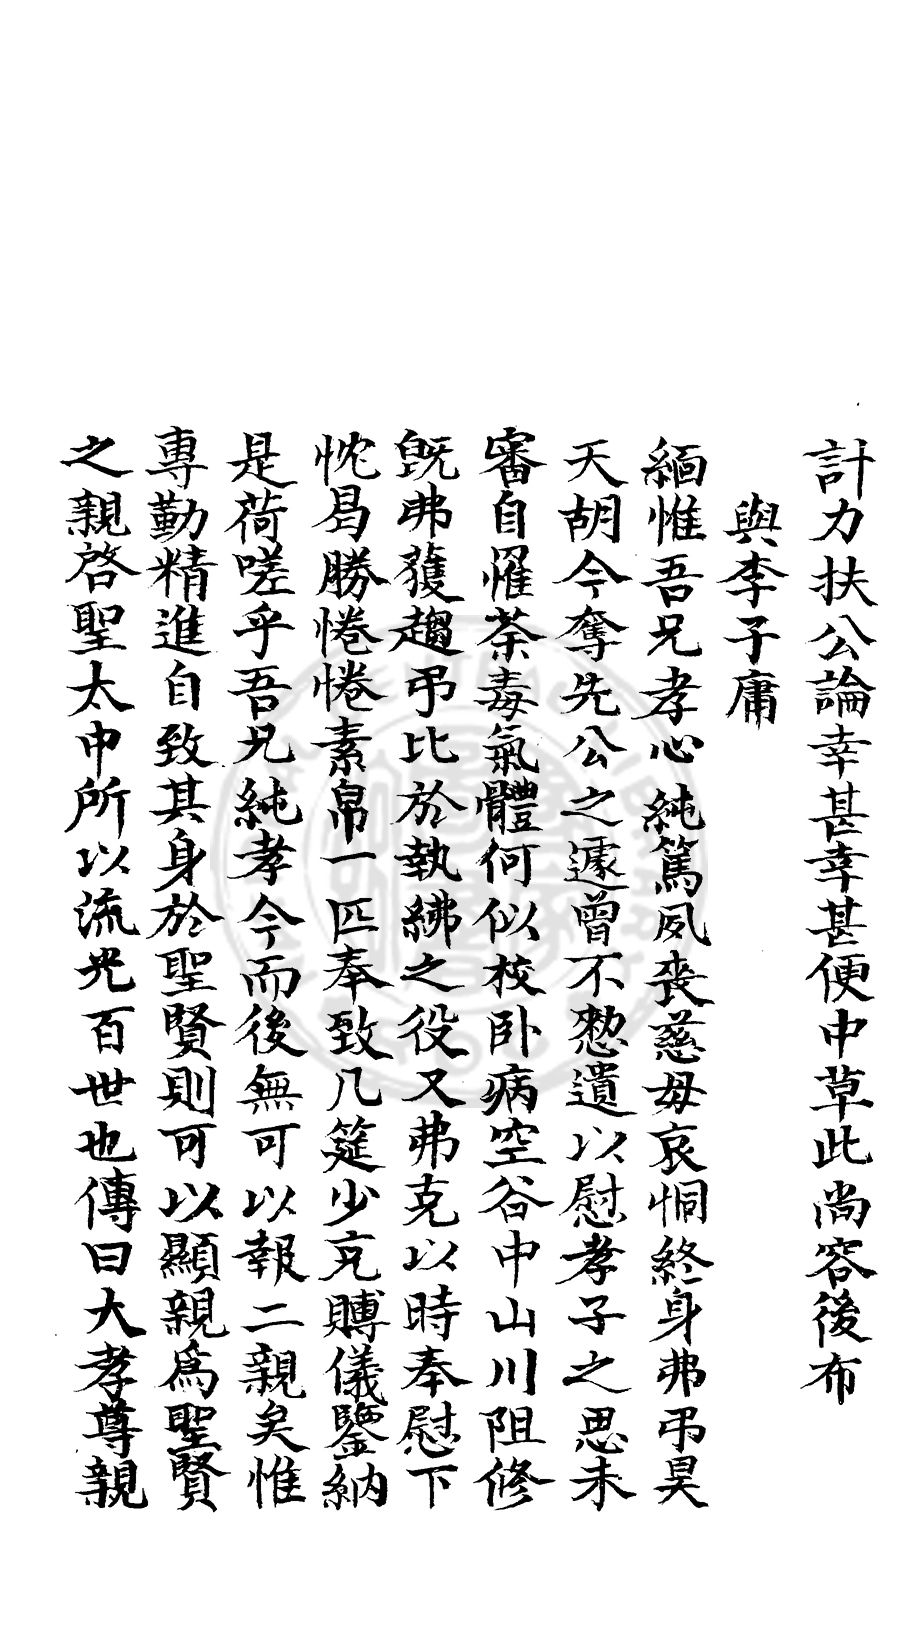 計力扶公論幸甚幸甚便中草此尚容後布
與李子庸
緬惟吾兄孝心純篤夙喪慈母哀恫終身弗弔昊
天胡今奪先公之遽曾不憖遺以慰孝子之思未
審自罹荼毒氣體何似校卧病空谷中山川阻修
既弗獲趨弔比於執紼之役又弗克以時奉慰下
忱曷勝惓惓素帛一匹奉致几筵少充賻儀鑒納
是荷嗟乎吾兄純孝今而後無可以報二親矣惟
專勤精進自致其身於聖賢則可以顯親為聖賢
之親啓聖太中所以流光百世也傳曰大孝尊親